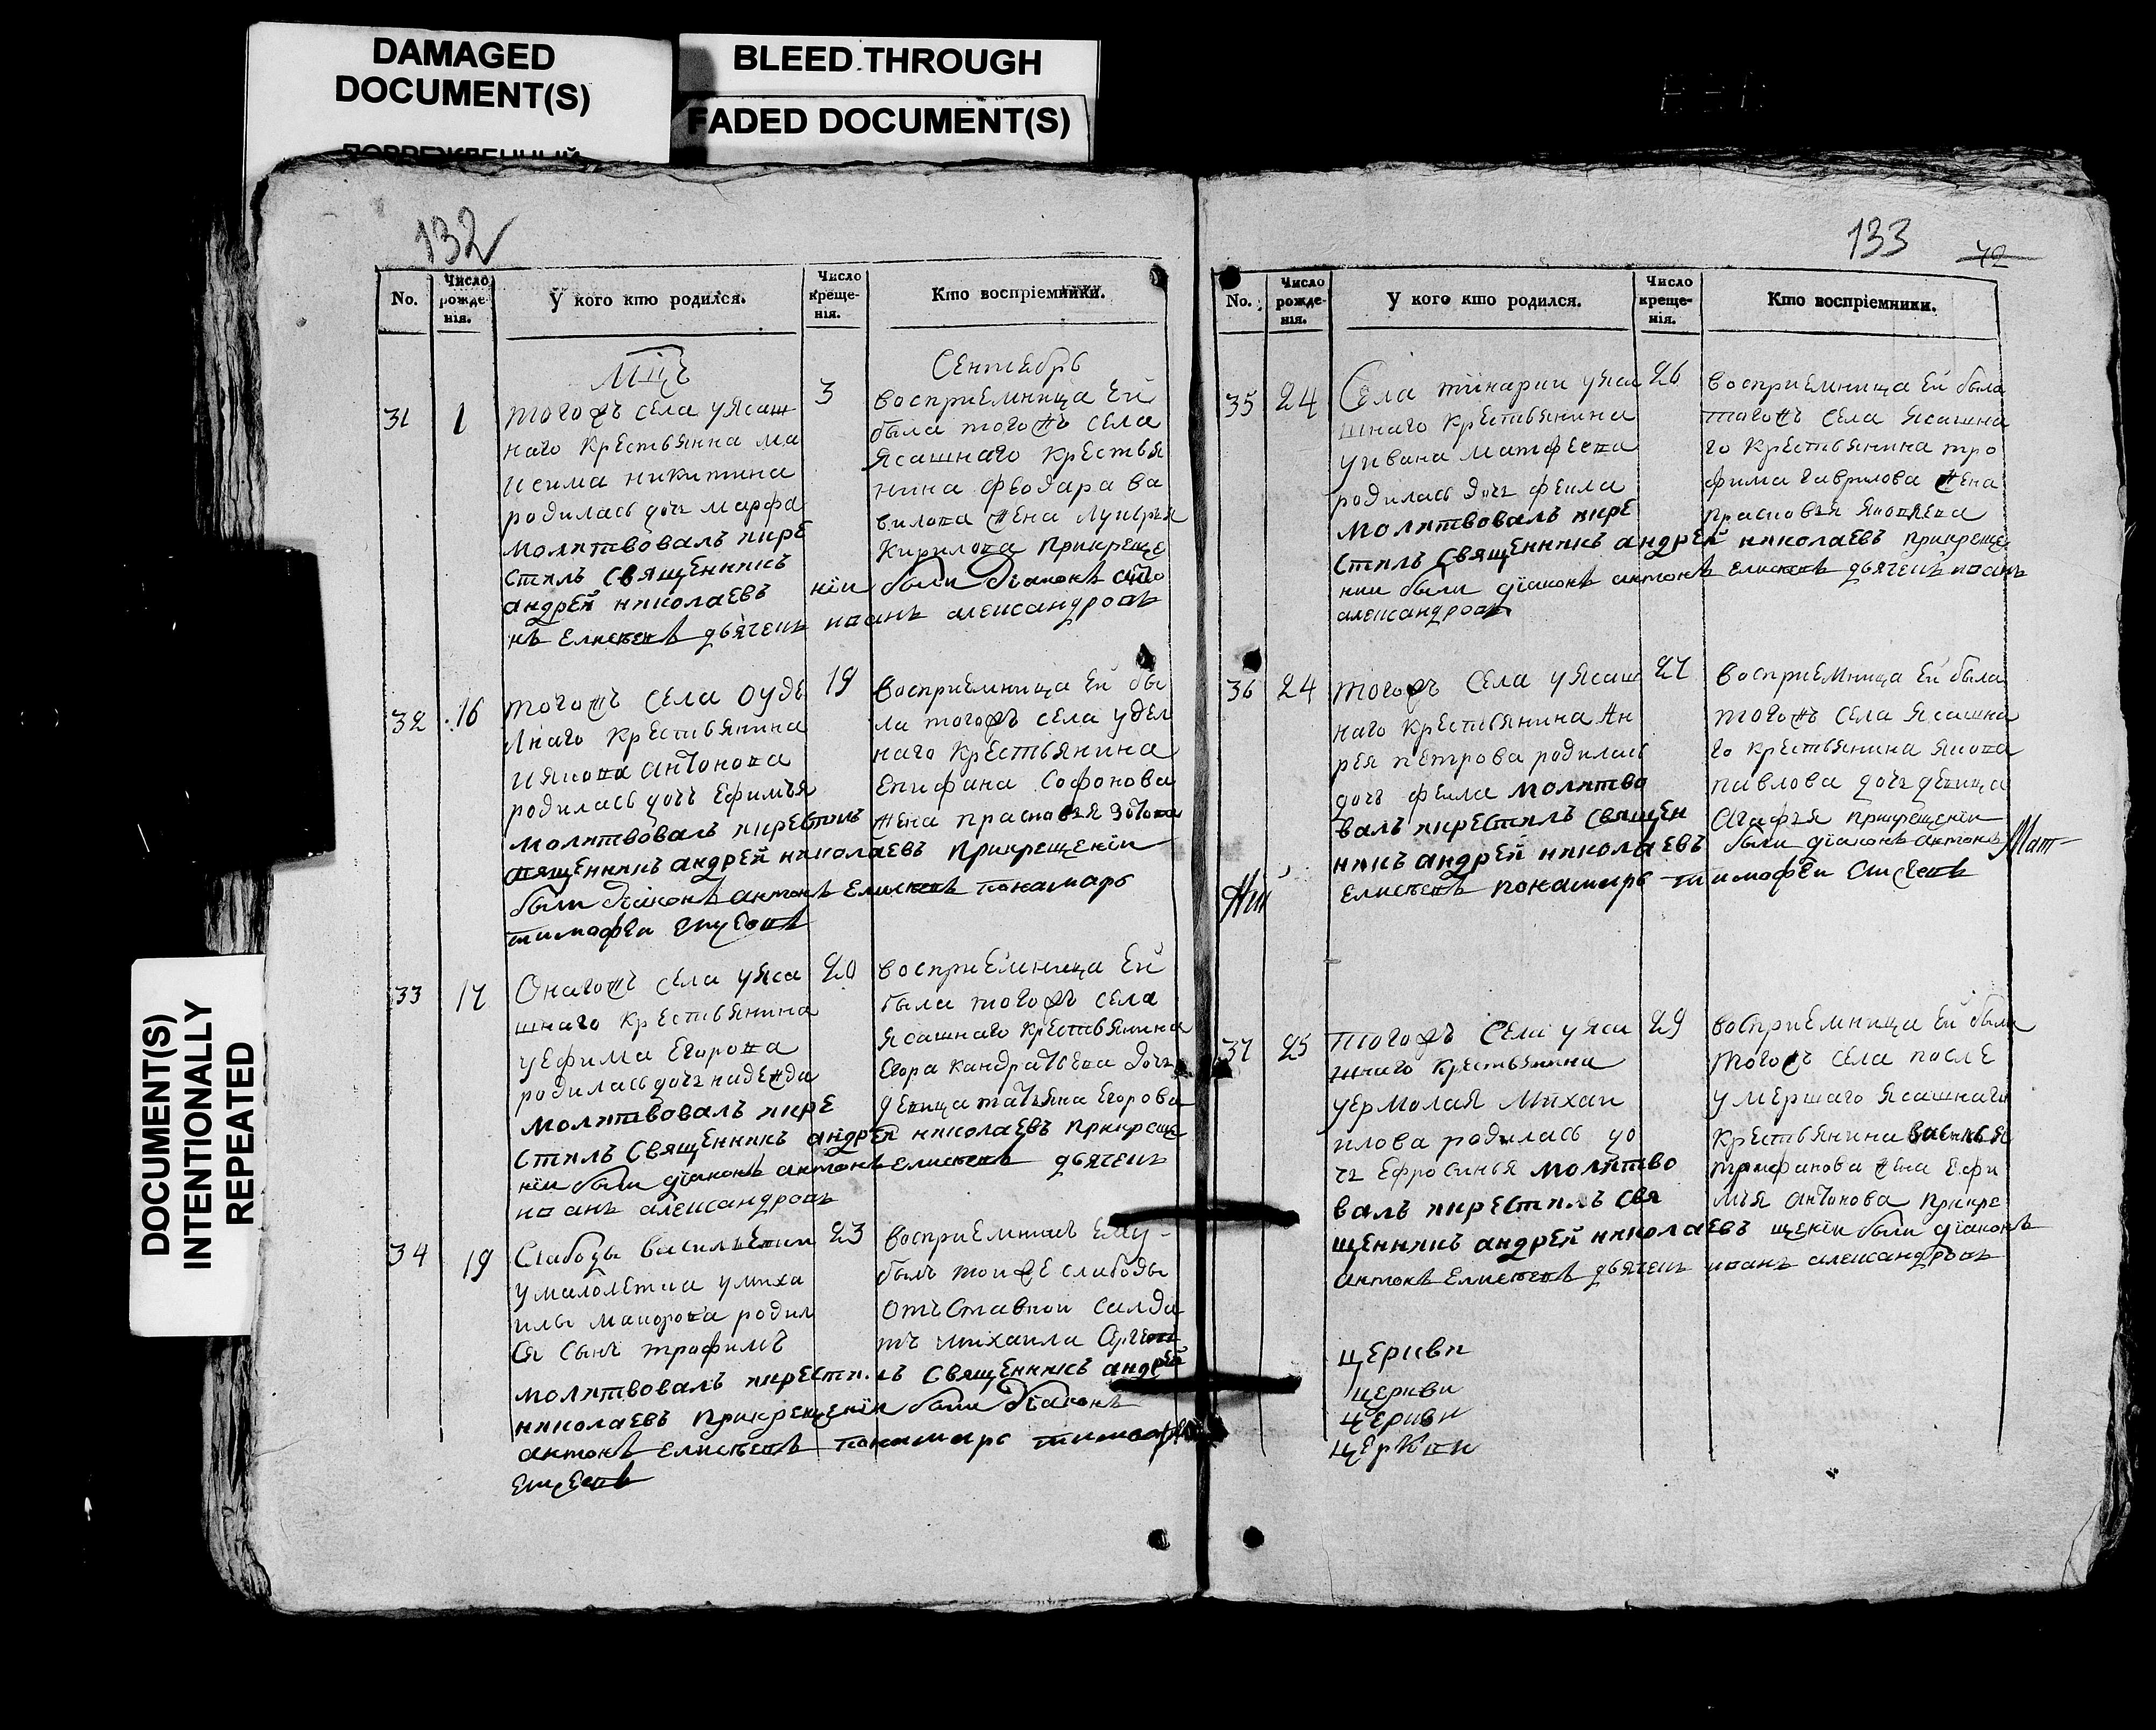 DAMAGED
DOCUMENT(S)
BLEED THROUGH
FADED DOCUMENT(S)
DOCUMENT(S)
INTENTIONALLY
REPEATED
132
No.
Число
рожде-
нія.
У кого кто родился.
Число
креще-
нія.
Кто воспріемники.
Мцъ
Сентебрь
31
1
тогожъ села уясаш
наго крестьянина ма
ѯима никитина
родилась дочь марфа
молитвовалъ икре
стилъ священникъ
андрей николаевъ
3
восприемница ей
была тогожъ села
ясашнаго крестья
нина феодара ва
вилова жена лукерья
Кирилова прикреще
нїи были дїаконъ анто
нъ елисеевъ дьячекъ иванъ александровъ
32
16
тогожъ села оуде
лнаго крестьянина
иякова антонова
родилась дочь ефимья
молитвовалъ икрестилъ
священникъ андрей николаевъ прикрещенїи
были дїаконъ антонъ елисеевъ понамарь
тимофеи
19
восприемница ей бы
ла тогожъ села удел
наго крестьянина
епифана софонова
жена прасковья зотова
33
17
Онагожъ села уяса
шнаго крестьянина
уефима егорова
родилась дочь надежда
молитвовалъ икре
стилъ священникъ андрей николаевъ прикреще
нїи были дїаконъ антонъ елисеевъ дьячекъ
иванъ александровъ
20
восприемница ей
была тогожъ села
ясашнаго крестьянина
егора кандратьева дочь
девица татьяна егорова
34
19
Слабоды васильевки
умалолѣтка умиха
илы маиорова родил
ся сынъ трофимъ
молитвовалъ икрестилъ священникъ андрей
николаевъ прикрещенїи были дїаконъ
антонъ елисеевъ понамарь тимофеи
23
восприемникъ ему
былъ тоиже слабоды
отъставнои салда
тъ михаила
133
72
No.
Число
рожде-
нія.
У кого кто родился.
Число
креще-
нія.
Кто воспріемники.
35
24
Села тинарки уяса
шнаго крестьянина
уивана матфеева
родилась дочь фекла
молитвовалъ икре
стилъ священникъ андрей николаевъ прикреще
нии были дїаконъ антонъ елисеевъ дьячекъ иванъ
александровъ
26
восприемница ей была
тогожъ села ясашна
го крестьянина тро
фима гаврилова жена
прасковья яковлева
36
24
тогожъ села уясаш
наго крестьянина ан
рея петрова родилась
дочь фекла молитво
валъ икрестилъ священ
никъ андрей николаевъ
елисеевъ понамарь тимофеи
27
восприемница ей была
тогожъ села ясашна
го крестьянина якова
павлова дочь девица
агафья прикрещенїи
были дїаконъ антонъ
37
25
тогожъ села уяса
шнаго крестьянина
уермолая михаи
илова родилась до
чь ефросинья молитво
валъ икрестилъ свя
щенникъ андрей николаевъ
29
восприемница ей была
тогожъ села после
умершаго ясашнаго
крестьянина василья
трифанова жена ефи
мья антонова прикре
щенїи были дїаконъ
антонъ елисеевъ дьячекъ иванъ александровъ
церкви
церкви
церкви
церкви